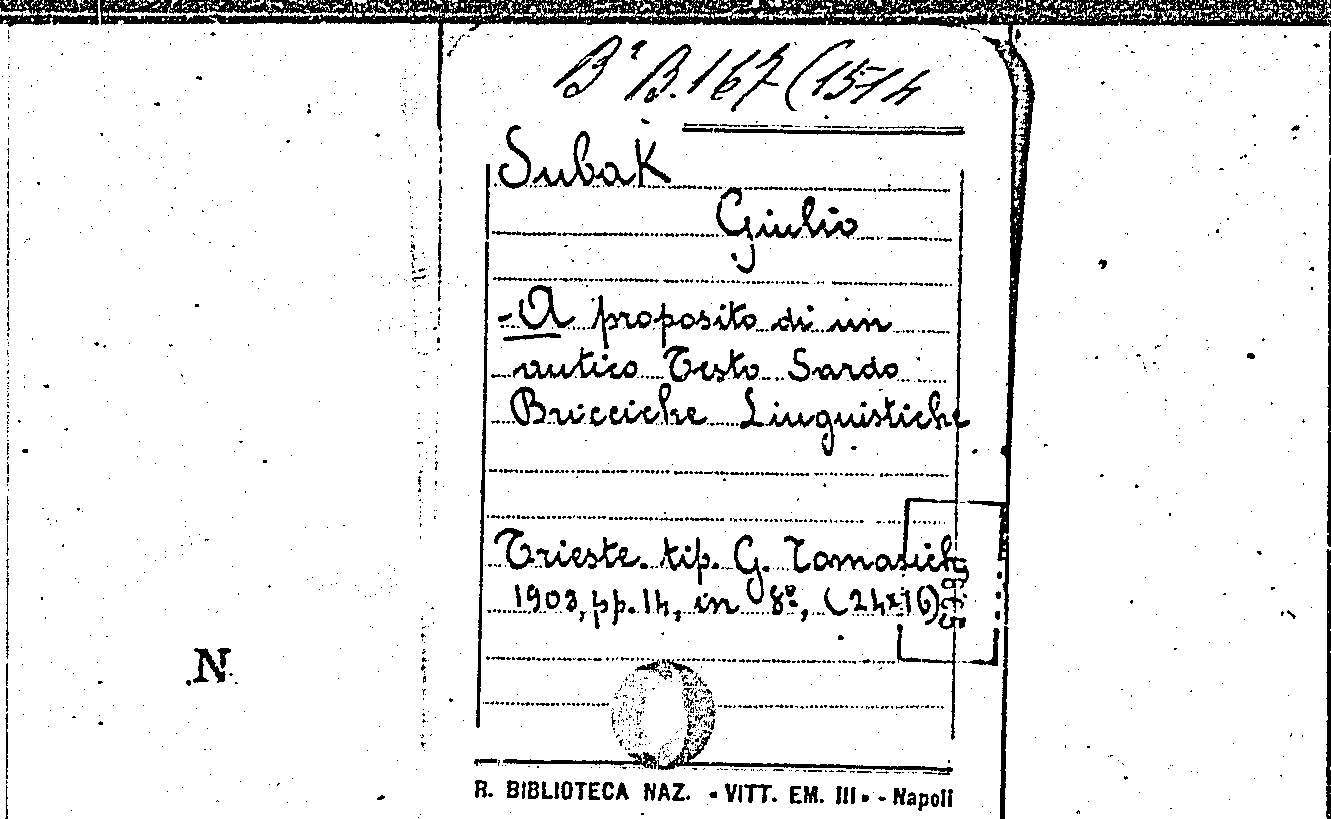 Bª B. 167 (1514
Subak
Giulio
- A proposito di un
antico Testo Sardo
Bricciche Linguistiche
Trieste. tip. G. Tomasich
1903, pp. 14, in 8º, (24x16)
N
R. BIBLIOTECA NAZ. «VITT. EM. III» - Napoli